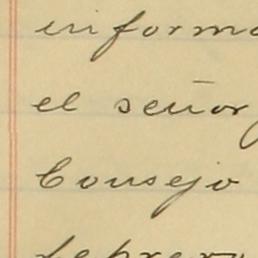 informa
el señor
Consejo